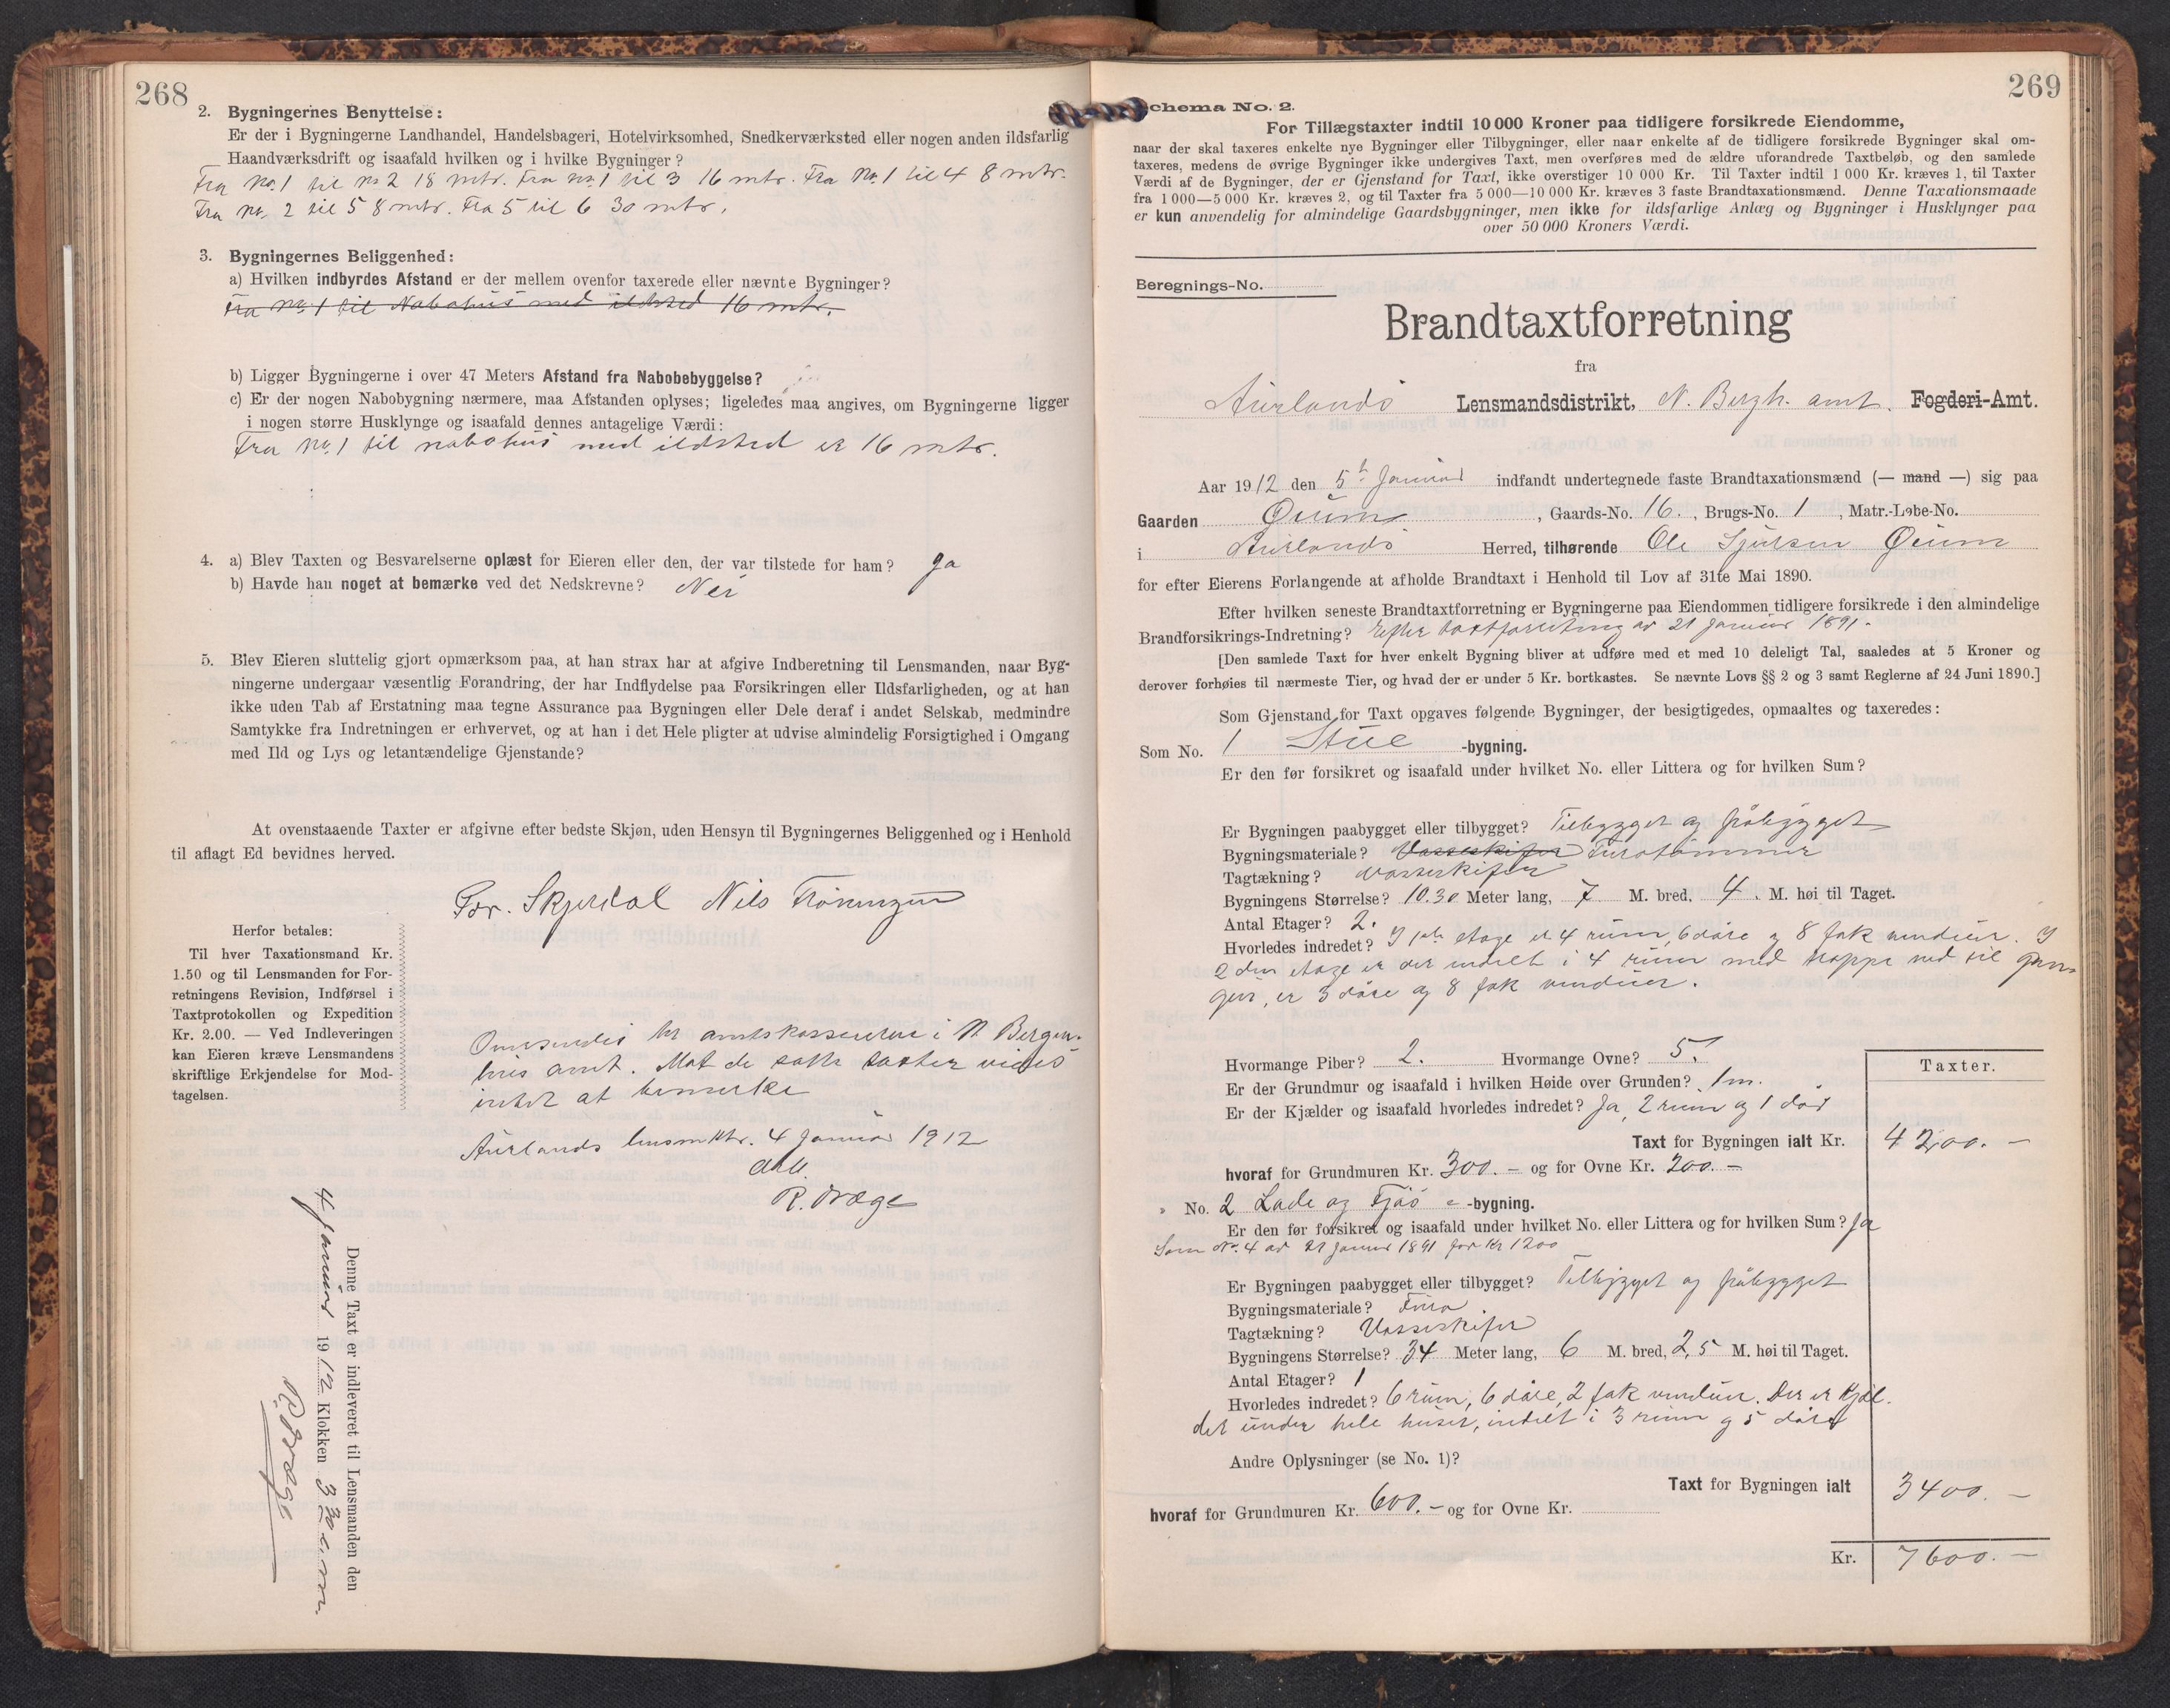 268
2. Bygningernes Benyttelse:
Er der i Bygningerne Landhandel, Handelsbageri, Hotelvirksomhed, Snedkerværksted eller nogen anden ildsfarlig
Haandværksdrift og isaafald hvilken og i hvilke Bygninger?
Fra No. 1 til No 2 18 mtr. Fra No. 1 til 3 16 mtr. Fra No. 1 til 4 8 mtr.
Fra No. 2 til 5 8 mtr. Fra 5 til 6 30 mtr.
3. Bygningernes Beliggenhed:
a) Hvilken indbyrdes Afstand er der mellem ovenfor taxerede eller nævnte Bygninger?
Fra No. 1 til Nabohus med ildsted 16 mtr.
b) Ligger Bygningerne i over 47 Meters Afstand fra Nabobebyggelse?
c) Er der nogen Nabobygning nærmere, maa Afstanden oplyses; ligeledes maa angives, om Bygningerne ligger
i nogen større Husklynge og isaafald dennes antagelige Værdi:
Fra No. 1 til nabohus med ildsted er 16 mtr.
4. a) Blev Taxten og Besvarelserne oplæst for Eieren eller den, der var tilstede for ham? Ja
b) Havde han noget at bemærke ved det Nedskrevne? Nei
5. Blev Eieren sluttelig gjort opmærksom paa, at han strax har at afgive Indberetning til Lensmanden, naar Byg-
ningerne undergaar væsentlig Forandring, der har Indflydelse paa Forsikringen eller Ildsfarligheden, og at han
ikke uden Tab af Erstatning maa tegne Assurance paa Bygningen eller Dele deraf i andet Selskab, medmindre
Samtykke fra Indretningen er erhvervet, og at han i det Hele pligter at udvise almindelig Forsigtighed i Omgang
med Ild og Lys og letantændelige Gjenstande?
At ovenstaaende Taxter er afgivne efter bedste Skjøn, uden Hensyn til Bygningernes Beliggenhed og i Henhold
til aflagt Ed bevidnes herved.
Skjerdal Nils
Herfor betales:
Til hver Taxationsmand Kr.
1.50 og til Lensmanden for For-
retningens Revision, Indførsel i
Taxtprotokollen og Expedition
Kr. 2.00. — Ved Indleveringen
kan Eieren kræve Lensmandens
skriftlige Erkjendelse for Mod-
tagelsen.
Omsendes hr amtskassereren i N Bergen-
hus amt. Mot de satte taxter vides
intet at bemerke
Aurlands lensmktr. 4 Januar 1912
R. Dræge
Denne Taxt er indleveret til Lensmanden den
4 Januar 1912 Klokken 3 30 em
R. Dræge
269
Schema No. 2.
For Tillægstaxter indtil 10 000 Kroner paa tidligere forsikrede Eiendomme,
naar der skal taxeres enkelte nye Bygninger eller Tilbygninger, eller naar enkelte af de tidligere forsikrede Bygninger skal om-
taxeres, medens de øvrige Bygninger ikke undergives Taxt, men overføres med de ældre uforandrede Taxtbeløb, og den samlede
Værdi af de Bygninger, der er Gjenstand for Taxt, ikke overstiger 10 000 Kr. Til Taxter indtil 1 000 Kr. kræves 1, til Taxter
fra 1 000—5 000 Kr. kræves 2, og til Taxter fra 5 000—10 000 Kr. kræves 3 faste Brandtaxationsmænd. Denne Taxationsmaade
er kun anvendelig for almindelige Gaardsbygninger, men ikke for ildsfarlige Anlæg og Bygninger i Husklynger paa
over 50 000 Kroners Værdi.
Beregnings-No.
Brandtaxtforretning
fra
Aurlands Lensmandsdistrikt, N. Bergh. amt. Fogderi-Amt.
Aar 1912 den 5te Januar indfandt undertegnede faste Brandtaxationsmænd (— mand —) sig paa
Gaarden Øium, Gaards-No. 16., Brugs-No. 1, Matr.-Løbe-No.
i Aurlands Herred, tilhørende Ole Sjursen Øium
for efter Eierens Forlangende at afholde Brandtaxt i Henhold til Lov af 31te Mai 1890.
Efter hvilken seneste Brandtaxtforretning er Bygningerne paa Eiendommen tidligere forsikrede i den almindelige
Brandforsikrings-Indretning? Efter taxtforretning av 21 Januar 1891.
[Den samlede Taxt for hver enkelt Bygning bliver at udføre med et med 10 deleligt Tal, saaledes at 5 Kroner og
derover forhøies til nærmeste Tier, og hvad der er under 5 Kr. bortkastes. Se nævnte Lovs §§ 2 og 3 samt Reglerne af 24 Juni 1890.]
Som Gjenstand for Taxt opgaves følgende Bygninger, der besigtigedes, opmaaltes og taxeredes:
Som No. 1 Stue -bygning.
Er den før forsikret og isaafald under hvilket No. eller Littera og for hvilken Sum?
Er Bygningen paabygget eller tilbygget? Tilbygget og påbygget
Bygningsmateriale? Vasseskifer Furutømmer
Tagtækning? Vasseskifer
Bygningens Størrelse? 10.30 Meter lang, 7 M. bred, 4. M. høi til Taget.
Antal Etager? 2.
Hvorledes indredet? I 1ste etage er 4 rum, 6 døre og 8 fak vinduer. I
2den etage er der indelt i 4 rum med trappe ned til gan-
gen, er 3 døre og 8 fak vinduer.
Hvormange Piber? 2. Hvormange Ovne? 5.
Er der Grundmur og isaafald i hvilken Høide over Grunden? 1 m.
Er der Kjælder og isaafald hvorledes indredet? Ja, 2 rum og 1 dør
Taxter.
Taxt for Bygningen ialt Kr. 4200. —
hvoraf for Grundmuren Kr. 300. — og for Ovne Kr. 200. —
" No. 2 Lade og Fjøs -bygning.
Er den før forsikret og isaafald under hvilket No. eller Littera og for hvilken Sum? Ja
Som No. 4 av 21 Januar 1891 for Kr 1200
Er Bygningen paabygget eller tilbygget? Tilbygget og påbygget
Bygningsmateriale? Furu
Tagtækning? Vasseskifer
Bygningens Størrelse? 34 Meter lang, 6 M. bred, 2,5 M. høi til Taget.
Antal Etager? 1
Hvorledes indredet? 6 rum, 6 døre, 2 fak vinduer. Der er kjæl-
der under hele huset, indelt i 3 rum og 5 døre
Andre Oplysninger (se No. 1)?
Taxt for Bygningen ialt 3400. —
hvoraf for Grundmuren Kr. 600. — og for Ovne Kr.
Kr. 7600. —